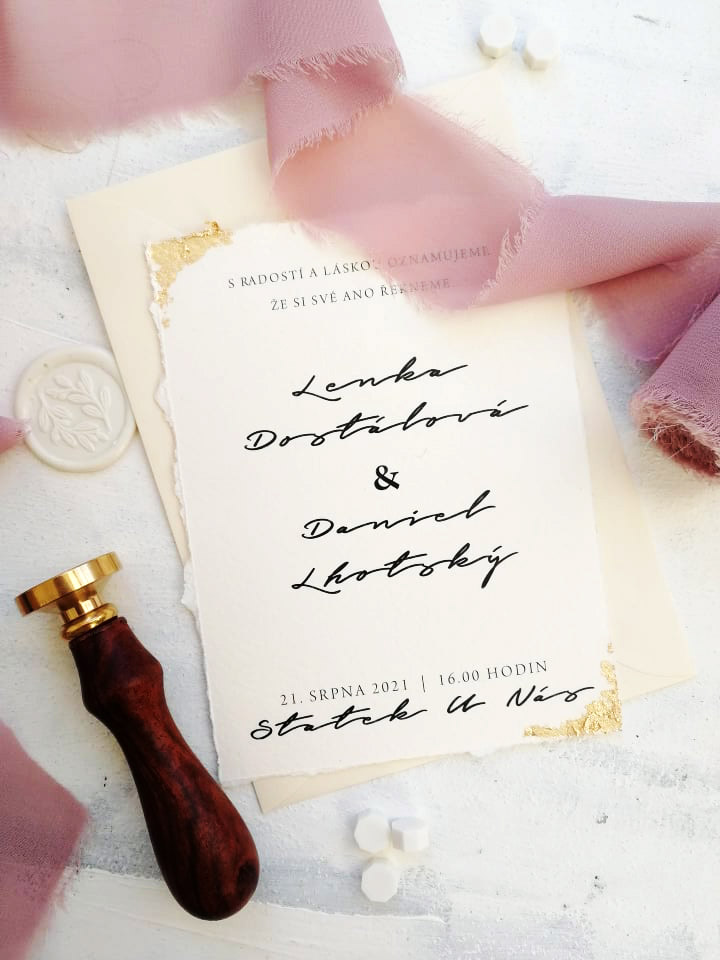 S RADOSTÍ A LÁSKOU OZNAMUJEME
ŽE SI SVÉ ANO ŘEKNEME
Lenka
Dostálová
&
Daniel
Lhotský
21. SRPNA 2021 | 16.00 HODIN
Statek U Nás